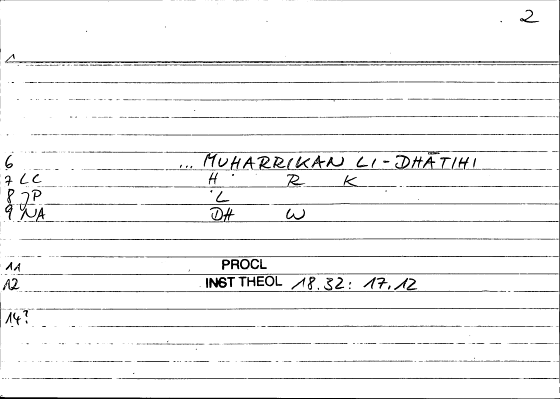 2
1
6 ... MUḤARRIKAN LI-DHĀTIHI
7 LC Ḥ R K
8 JP L
9 NA DH W
11 PROCL
12 INST THEOL 18.32: 17.12
14?